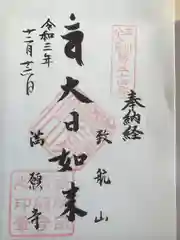 奉納経
致航山
大日如来
満願寺
令和三年
十二月十二日